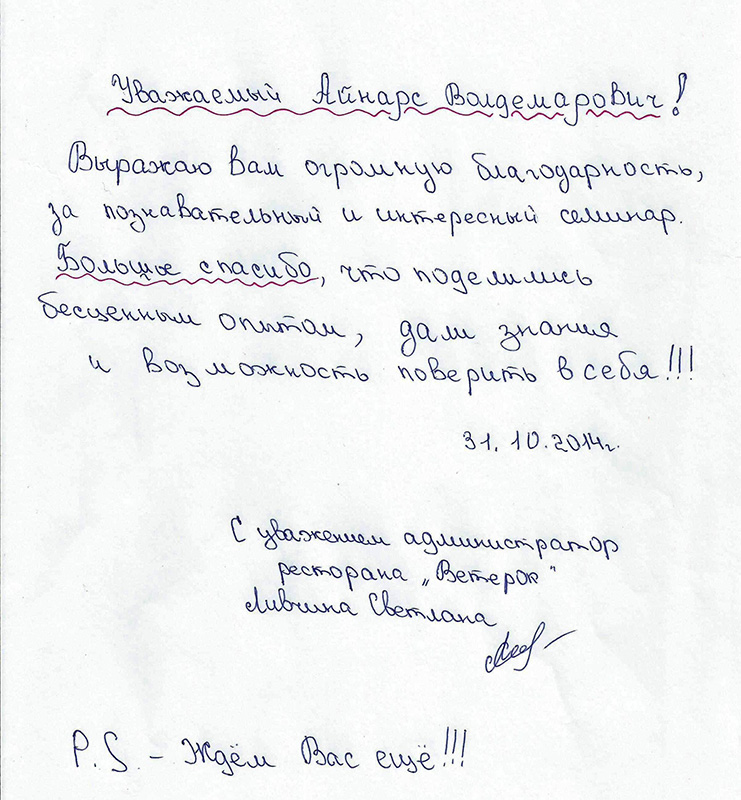 Уважаемый Айнарс Волдемарович!
Выражаю вам огромную благодарность,
за познавательный и интересный семинар.
Большое спасибо, что поделились
бесценным опытом, дали знания
и возможность поверить в себя!!!
31.10.2014г.
С уважением администратор
ресторана „Ветерок"
Ливчина Светлана
P.S. - Ждём Вас ещё!!!